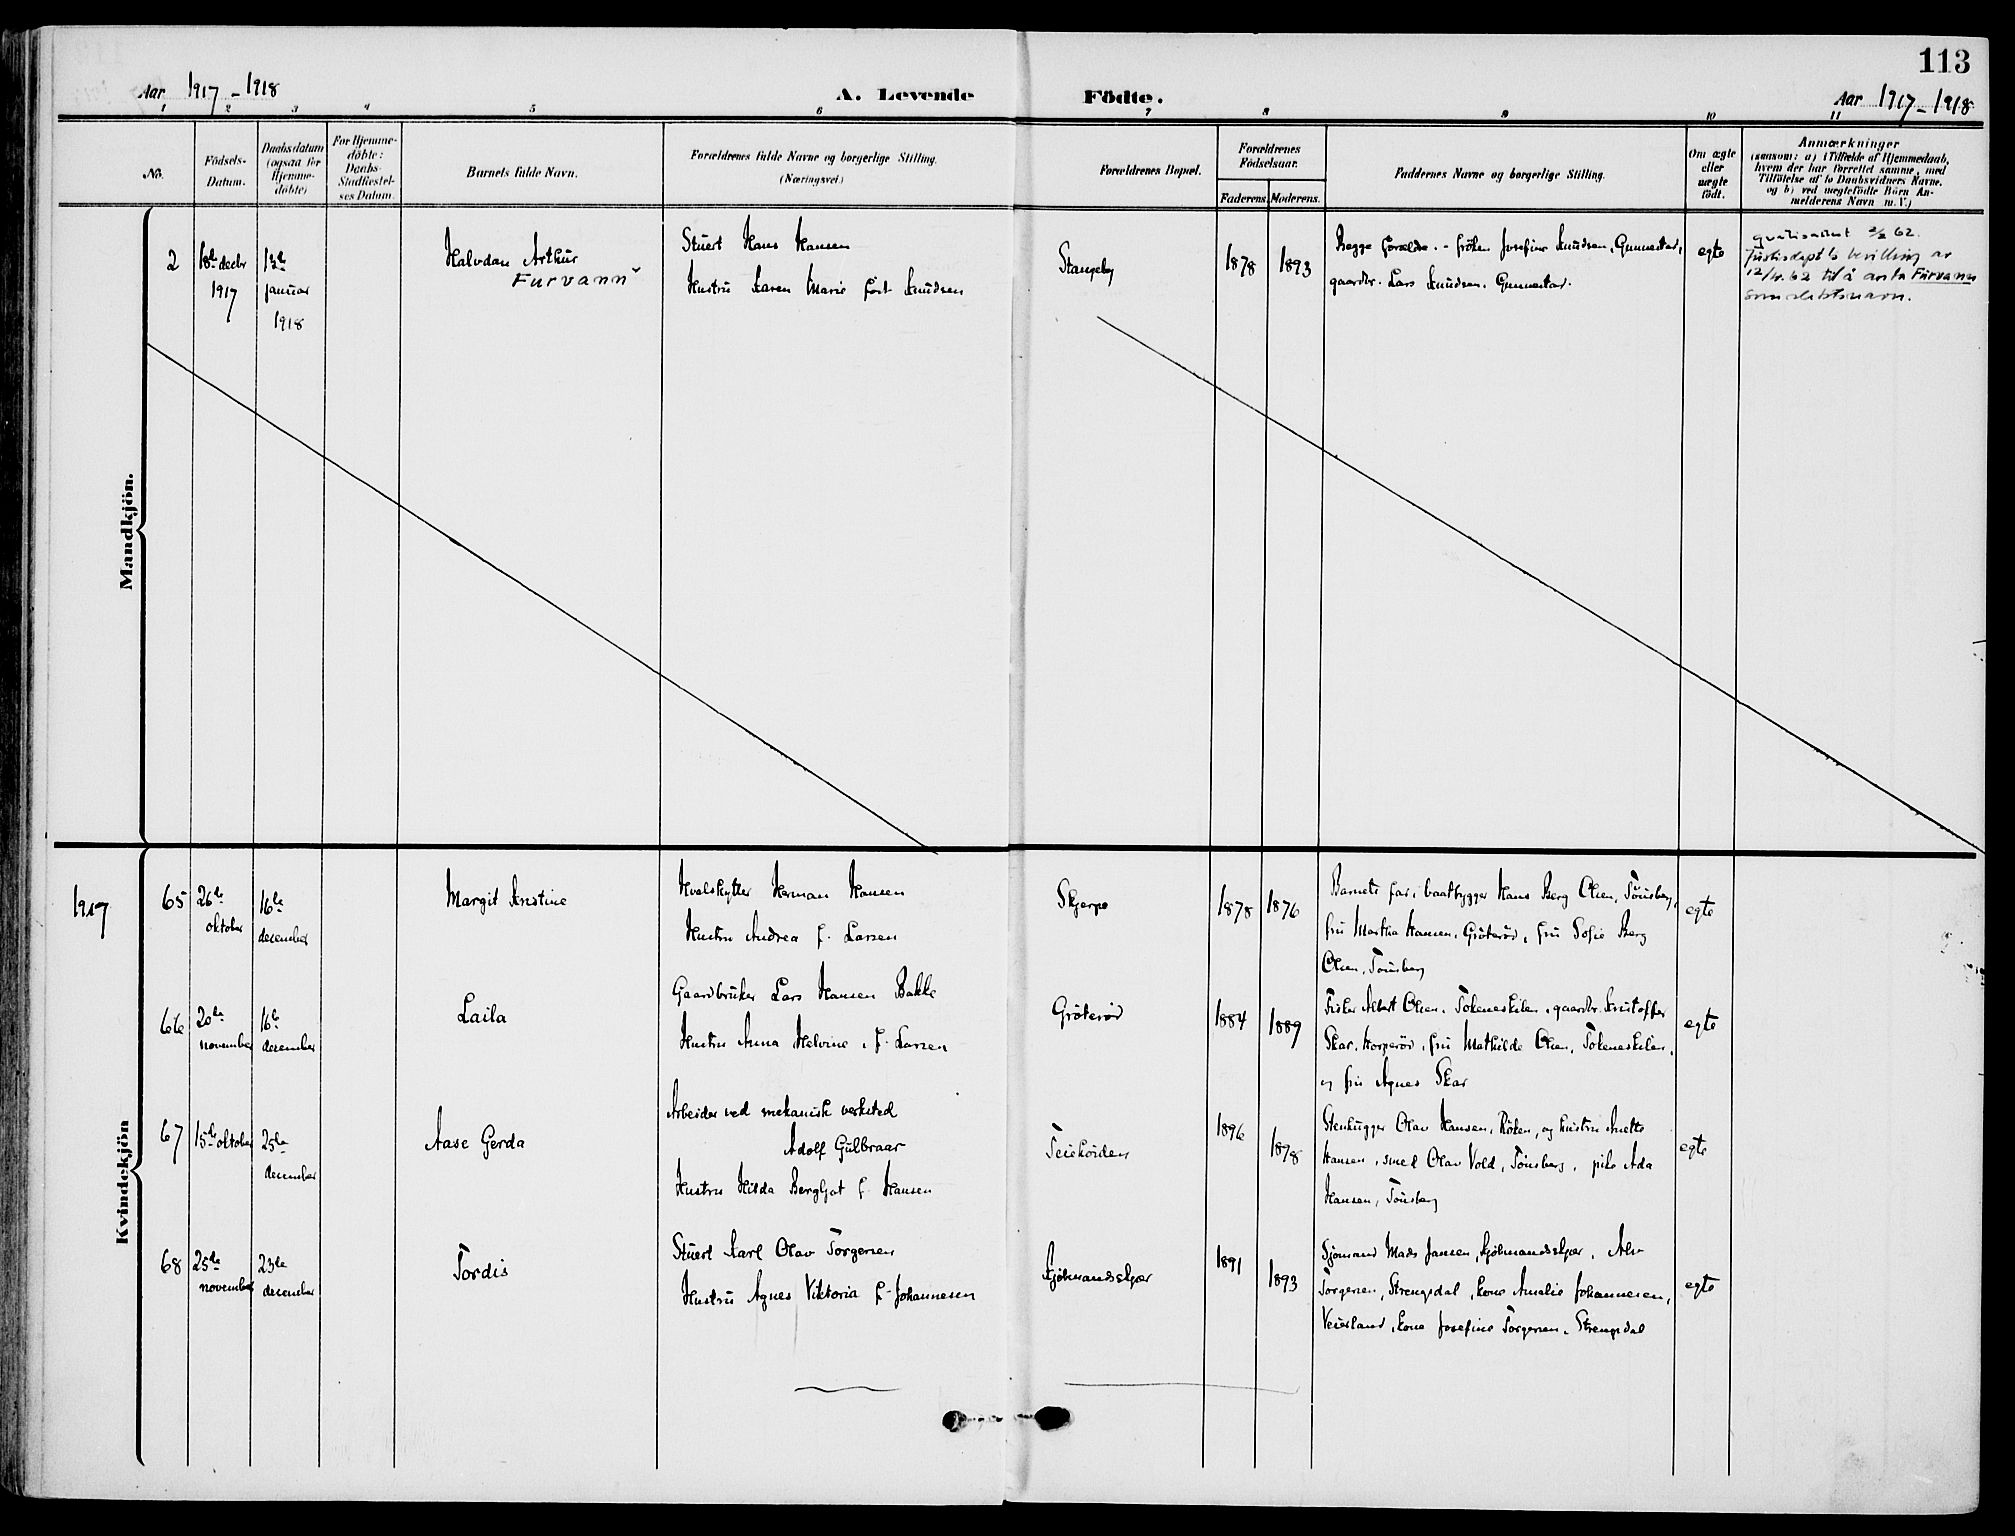 113
Aar 1917-1918
A. Levende
Födte.
Aar 1917-1918
1 2 3 4 5 6 7 8 9 10 11
No.
Födsels-
Datum.
Daabsdatum
(ogsaa for
Hjemme-
döbte)
For Hjemme-
döbte:
Daabs-
Stadfæstel-
ses Datum.
Barnets fulde Navn.
Forældrenes fulde Navne og borgerlige Stilling.
(Næringsvei.)
Forældrenes Bopæl.
Forældrenes
Födselsaar.
Faderens. Moderens.
Faddernes Navne og borgerlige Stilling.
Om ægte
eller
uægte
födt.
Anmærkninger
(saasom: a) i Tilfælde af Hjemmedaab,
hvem der har forrettet samme, med
Tilföielse af to Daabsvidners Navne,
og b) ved uægtefödte Börn An-
melderens Navn m. V.)
Mandkjön.
2
18de decbr
1917
13de
januar
1918
Halvdan Arthur
Furvann
Stuert Hans Hansen
Hustru Karen Marie født Knudsen
Stangeby
1878
1893
Begge forældre. - frøken Josefine Knudsen, Gunnestad,
gaardbr. Lars Knudsen, Gunnestad.
egte
62.
Justisdept's bevilling av
12/4.62 til å anta Furvann
som slektsnavn.
Kvindekjön
1917
65
26de
oktober
16de
december
Margit Kristine
Hvalskytter Herman Hansen
Hustru Andrea f. Larsen
Skjerpe
1878
1876
Barnets far, baatbygger Hans Berg Olsen, Tønsberg,
fru Martha Hansen, Grøterød, fru Sofie Berg
Olsen, Tønsberg
egte
66
20de
november
16de
december
Laila
Gaardbruker Lars Hansen Bakke
Hustru Anna Helvine, f. Larsen
Grøterød
1884
1889
Fisker Albert Olsen, Tokeneskilen, gaardbr. Kristoffer
Skar, Horperød, fru Mathilde Olsen, Tokeneskilen,
og fru Agnes Skar
egte
67
15de oktober
25de
december
Aase Gerda
Arbeider ved mekanisk verksted
Adolf Gulbraar
Hustru Hilda Bergljot f. Hansen
Teiehøiden
1896
1898
Stenhugger Olav Hansen, Røken, og hustru Anette
Hansen, smed Olav Vold, Tønsberg, pike Ada
Hansen, Tønsberg
egte
68
25de
november
23de
december
Tordis
Stuert Karl Olav Torgersen
Hustru Agnes Viktoria f. Johannesen
Kjøbmandsskjær
1891
1893
Sjømand Mads Jansen, Kjøbmandsskjær, Alv
Torgersen, Strengsdal, kone Amalie Johannesen,
Veierland, kone Josefine Torgersen, Strengsdal
egte